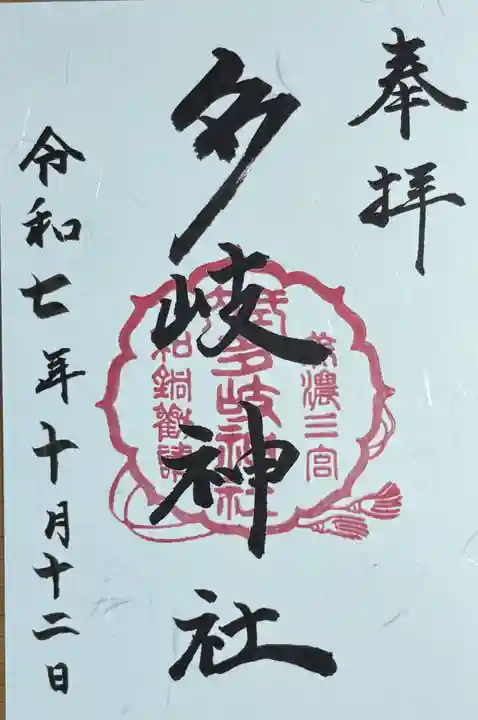 奉拝
多岐神社
美濃三宮
多岐神社
和銅勧請
令和七年十月十二日